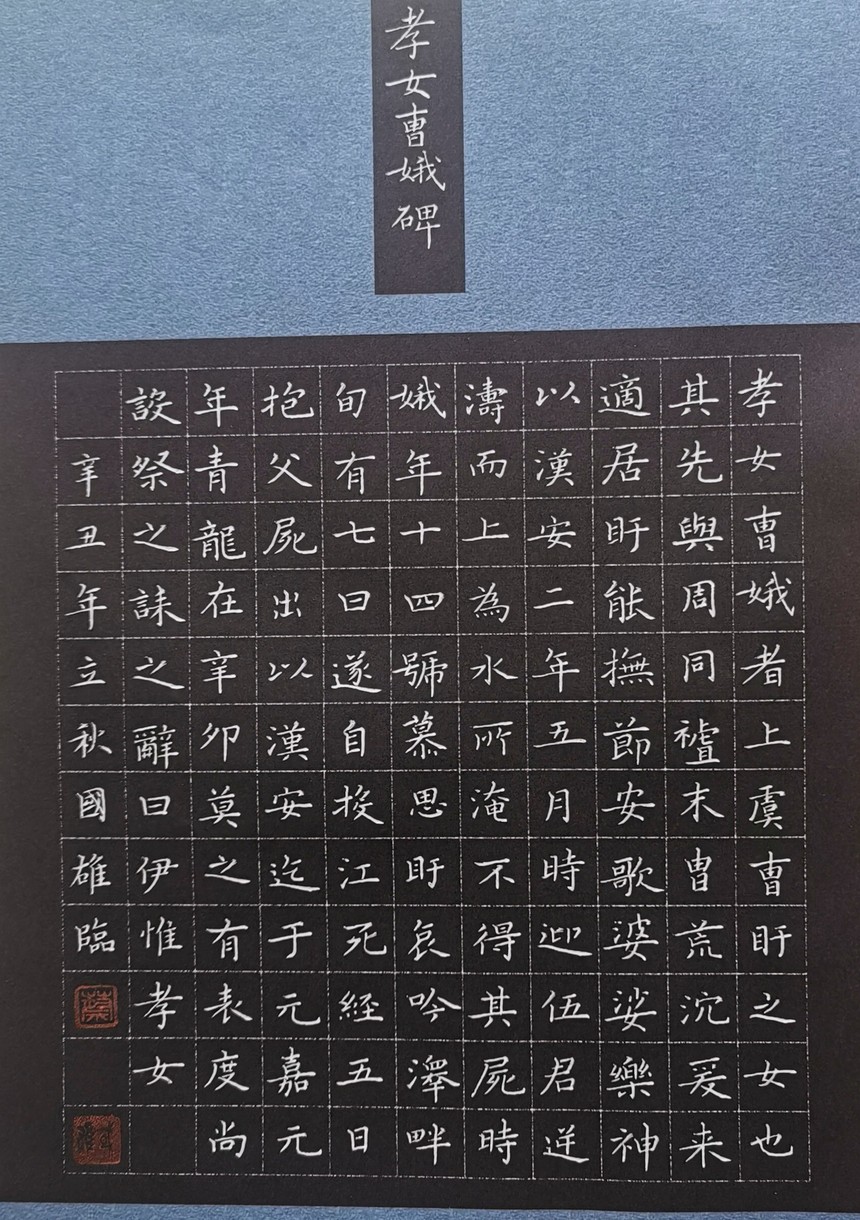 孝女曺娥碑
孝女曺娥者上虞曺盱之女也
其先與周同末胄荒沉爰来
適居盱能撫節安歌婆娑樂神
以漢安二年五月時迎伍君逆
濤而上為水所淹不得其屍時
娥年十四號慕思盱哀吟澤畔
旬有七日遂自投江死經五日
抱父屍出以漢安迄于元嘉元
年青龍在辛卯莫之有表度尚
設祭之誄之辭曰伊惟孝女
辛丑年立秋國雄臨